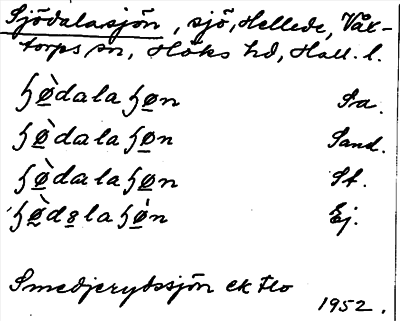 Sjödalasjön, sjö, Hellede, Våx-
torps sn, Höks hd, Hall. l.
ɧø̀dalaɧøn Fa.
ɧø̀dalaɧøn Sand.
ɧø̀dalaɧøn St.
ɧø̀dalaɧøn Ej.
Smedjerydssjön ek
1952.